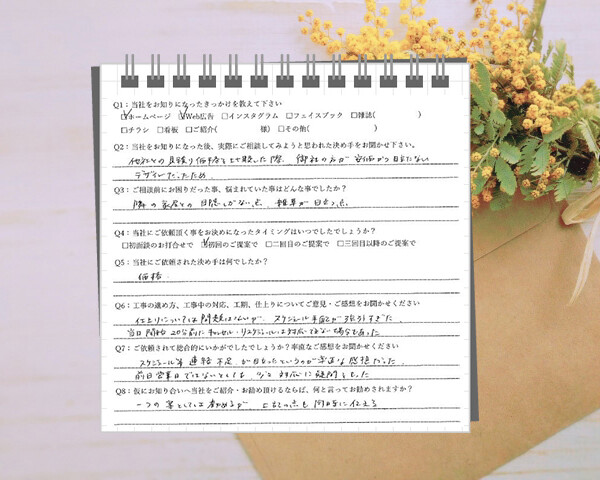 Q1：当社をお知りになったきっかけを教えて下さい
☑ホームページ ☑Web広告 □インスタグラム □フェイスブック □雑誌( )
□チラシ □看板 □ご紹介( 様) □その他( )
Q2：当社をお知りになった後、実際にご相談してみようと思われた決め手をお聞かせ下さい。
他社との見積り価格を比較した際、御社の方が安価かつ目立たない
デザインだったため
Q3：ご相談前にお困りだった事、悩まれていた事はどんな事でしたか？
隣の家屋との目隠しがない点、雑草が目立つ点
Q4：当社にご依頼頂く事をお決めになったタイミングはいつでしたでしょうか？
□初面談のお打合せで ☑初回のご提案で □二回目のご提案で □三回目以降のご提案で
Q5：当社にご依頼された決め手は何でしたか？
価格
Q6：工事の進め方、工事中の対応、工期、仕上りについてご意見・ご感想をお聞かせください
仕上りについては問題はないが、スケジュール手配が強引すぎた
当日開始20分前にキャンセル・リスケジュールは対応できない場合もあった
Q7：ご依頼されて総合的にいかがでしたでしょうか？率直なご感想をお聞かせください
スケジュール等 連絡不足が目立ったというのが率直な感想だった
前日営業日ではないとしても 対応に疑問をもった
Q8：仮にお知り合いへ当社をご紹介・お勧め頂けるならば、何と言ってお勧めされますか？
一つの案としては勧めるが 上記の点も同時に伝える